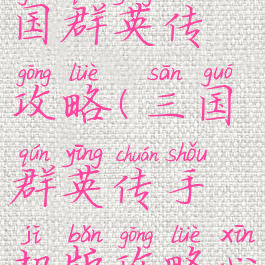 国群英传
gōng lüè sān guó
攻略(三国
qún yīng chuán shǒu
群英传手
jī bǎn gōng lüè xīn
机版攻略心